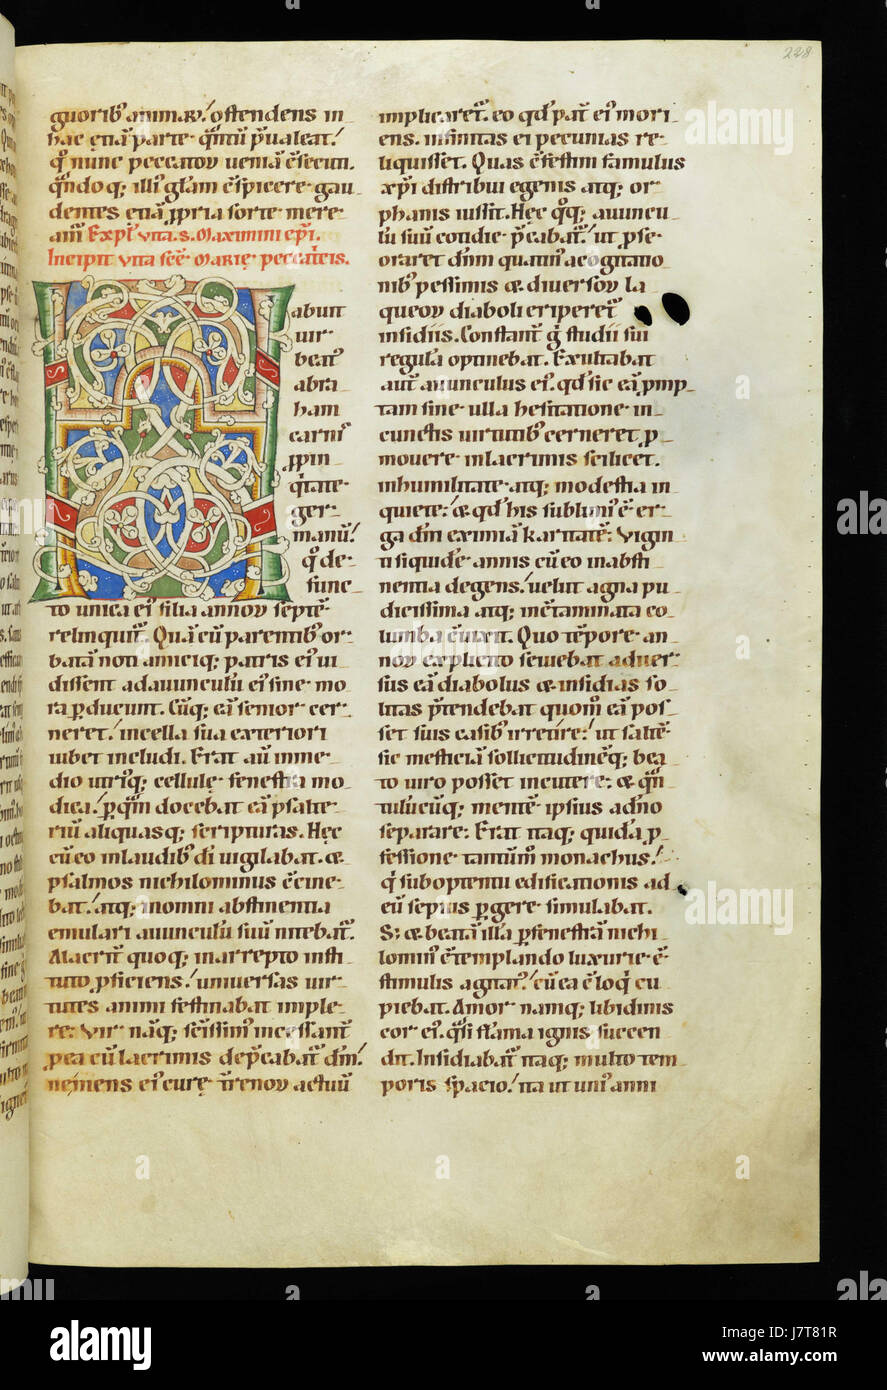 228
guorib' animarū. ostendens in
hac etiā parte. q̄ntū p̄ualeat.
q̄ nunc peccatorū ueniā ē secut.
q̄ndoq; illi' gl̄am c̄spicere gau
dentes etiā ꝓpria sorte mere
am̄. Expl' vita. s. Maximini ep̄i.
Incipit vita scē. Marię peccat'cis.
Habuit
uir
beat'
abra
ham
carni'
ꝓpin
q̄tate
ger
manū.
q̄ de
func
to unica ei' filia annorū septē
relinquit̄. Quā cū parentib' or
batā noti amiciq; patris ei' ui
dissent ad auunculū ei' sine mo
ra ꝑducunt. Cūq; eā senior cer
neret. in cella sua exteriori
iubet includi. Erat aū in me
dio utriq; cellulę fenestra mo
dica. ꝑ quā docebat eā psalte
riū aliquasq; scripturas. Hęc
cū eo in laudib' dī uigilabat. &
psalmos nichilominus c̄cine
bat. atq; in omni abstinentia
emulari auunculū suū nitebat̄.
Alacrit̄ quoq; in arrepto insti
tuto ꝓficiens. uniuersas uir
tutes animi festinabat imple
re. Vir nāq; sc̄issim' incessant̄
ꝑ ea cū lacrimis dep̄cabat̄ dn̄m.
ne mens ei' curę t̄renorū actuū
implicaret̄. eo qd' pat̄ ei' mori
ens. infinitas ei pecunias re
liquisset. Quas c̄festim famulus
xp̄i distribui egenis atq; or
phanis iussit. Hęc q̊q; auuncu
lū suū cotidie p̄cabat̄. ut ꝓ se
oraret dn̄m quatin' a cogitatio
nib' pessimis & diuersorū la
queorū diaboli eriperet̄
insidiis. Constant̄ g̊ studii sui
regulā optinebat. Exultabat
aut̄ auunculus ei'. qd' sic eā ꝓmp
tam sine ulla hesitatione in
cunctis uirtutib' cerneret ꝓ
mouere. in lacrimis scilicet.
in humilitate atq; modestia in
quiete. & qd' his sublimi' ē er
ga dm̄ eximiā karitatē. Vigin
ti siquide annis cū eo in absti
nentia degens. uelut agna pu
dicissima atq; inc̄taminata co
lumba c̄uixit. Quo tēpore an
norū explicito seuiebat aduer
sus eā diabolus & insidias so
litas p̄tendebat quom̊ eā pos
set suis casib' irretire. ut saltē
sic mesticiā sollicitudinēq; bea
to uiro posset incutere. & q̄n
tulūcūq; mentē ipsius a dn̄o
separare. Erat itaq; quidā ꝓ
fessione tantūm̊ monachus.
q̄ sub optentu edificationis ad
eū sepius ꝑgere simulabat.
S; & beatā illā ꝑ fenestrā nichi
lomin' c̄templando luxurie ē
stimulis agitat'. cū ea c̄loq̄ cu
piebat. Amor namq; libidinis
cor ei'. q̄si flama ignis succen
dit. Insidiabat̄ itaq; multo tem
poris spacio. ita ut uni' anni
alamy
alamy
alamy
a
a
a
alamy
J7T81R